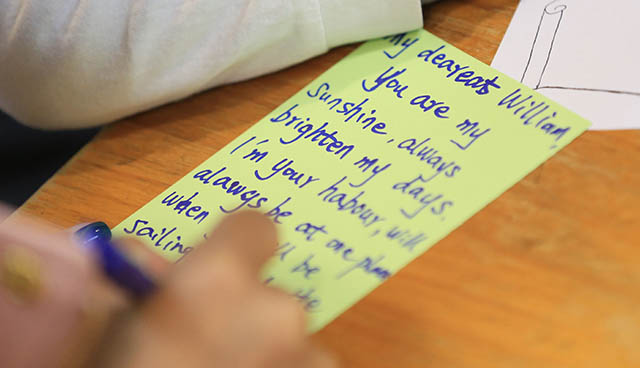 My deareast William,
You are my
sunshine, always
brighten my days.
I'm your habour, will
alawys be at one
when
sailing be
the